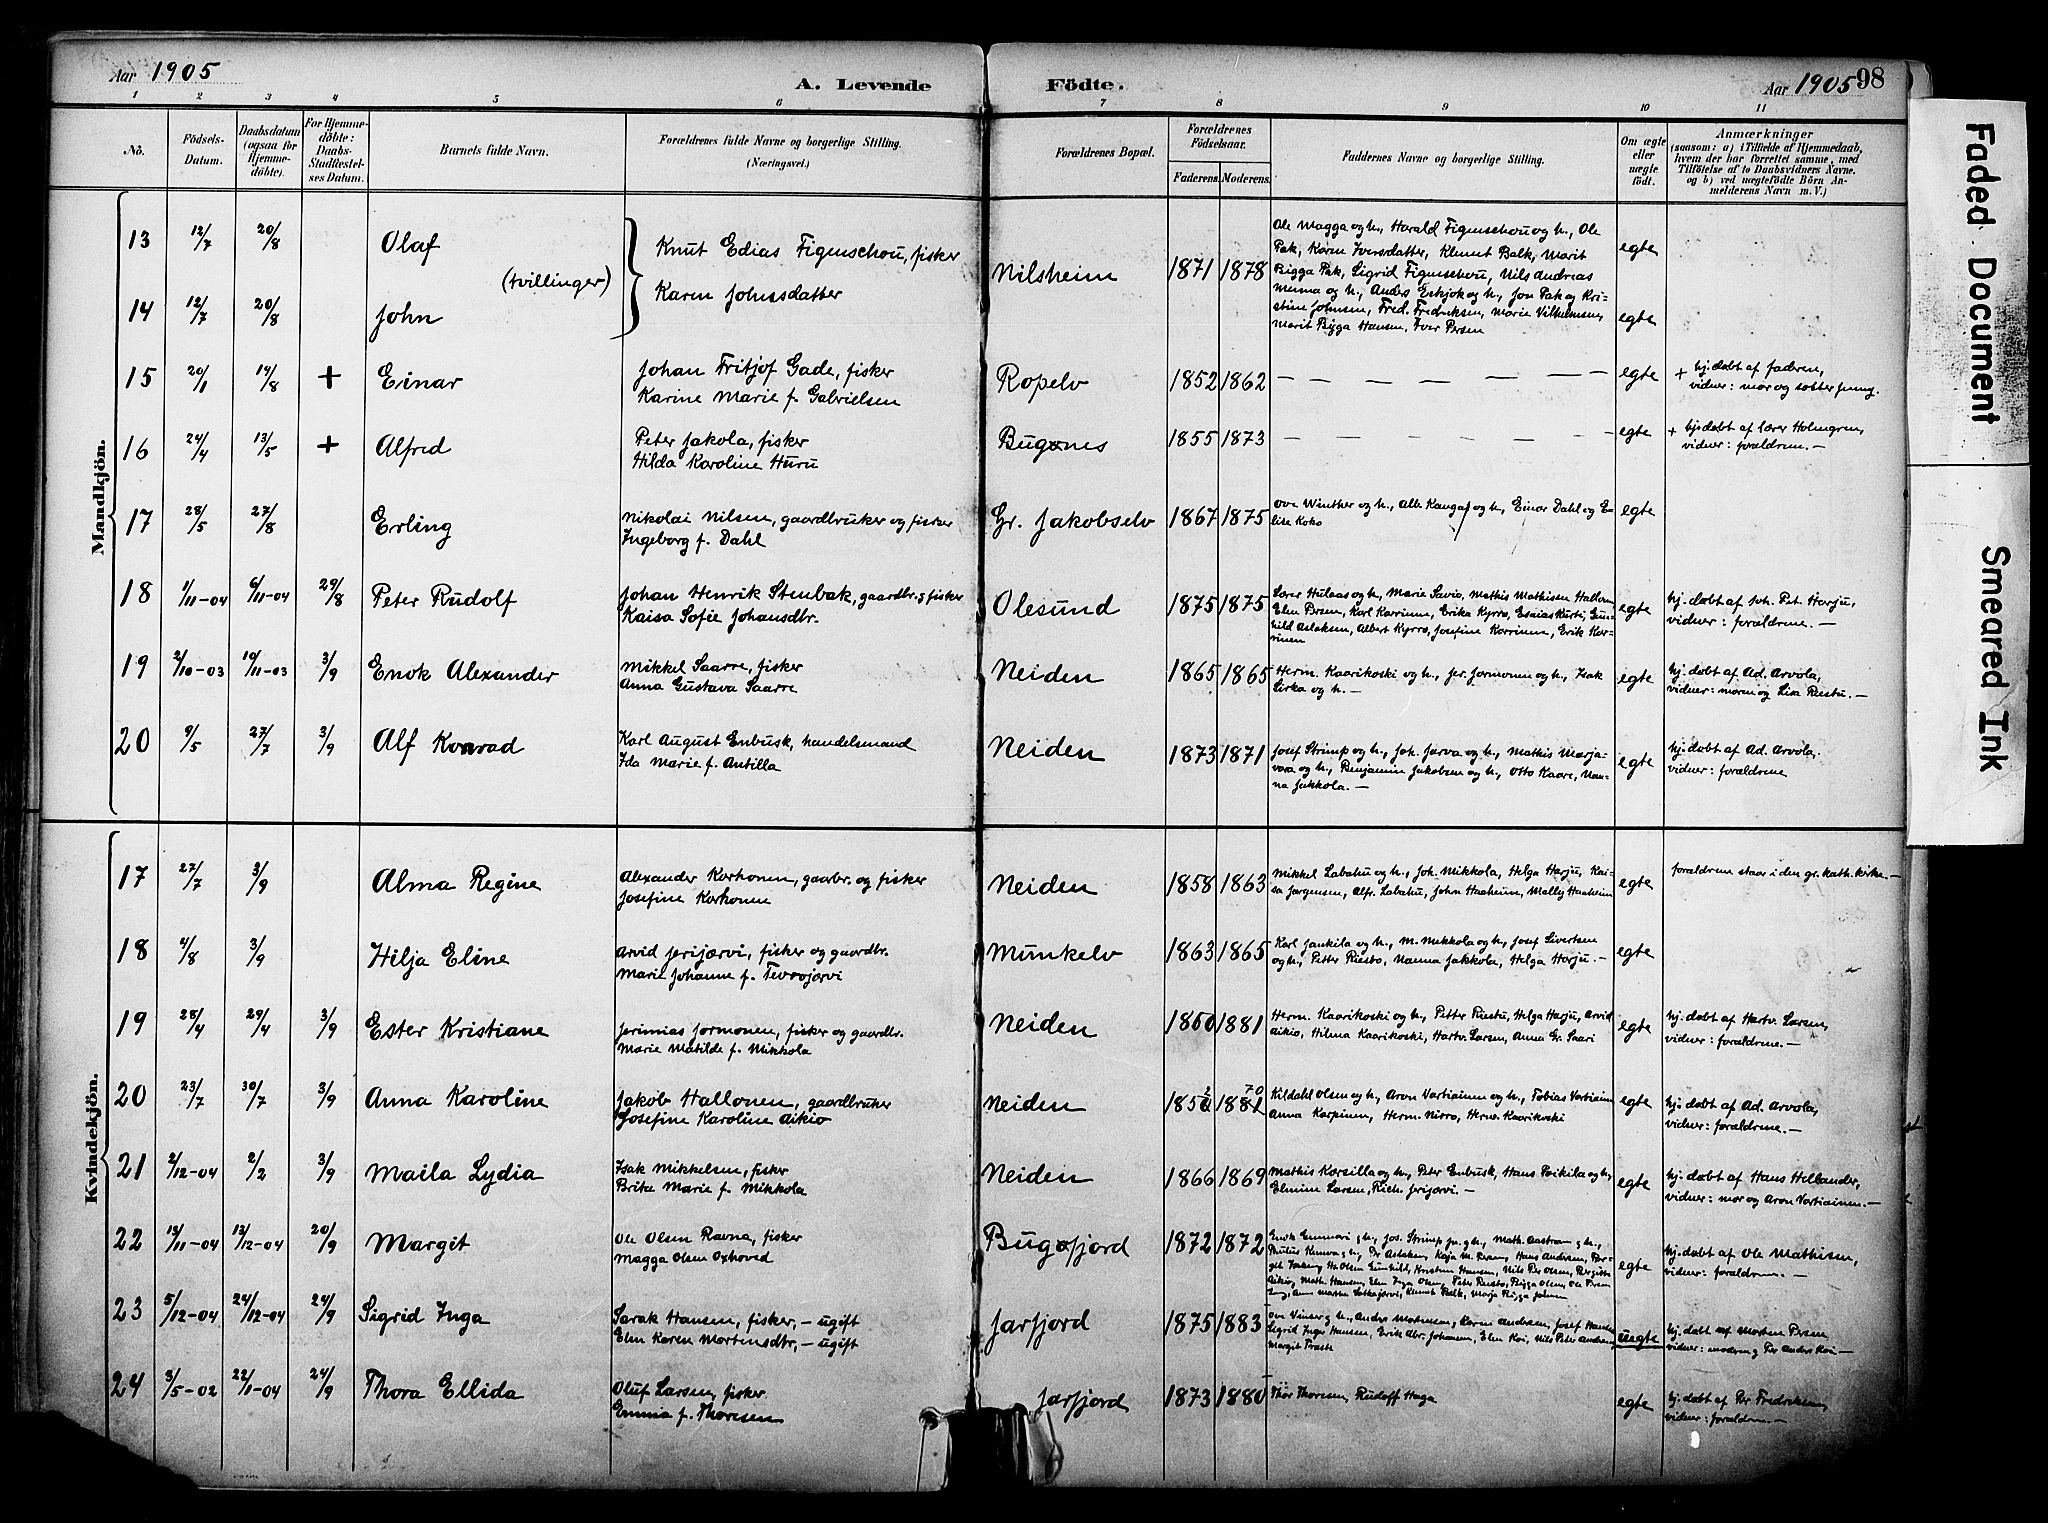 Aar 1905
A. Levende Födte.
Aar 1905 98
1 2 3 4 5 6 7 8 9 10 11
Nô.
Födsels-Datum.
Daabsdatum (ogsaa for Hjemme-döbte).
For Hjemme-döbte: Daabs-Stadfæstel-ses Datum.
Barnets fulde Navn.
Forældrenes fulde Navne og borgerlige Stilling.
(Næringsvei.)
Forældrenes Bopæl.
Forældrenes Födselsaar.
Faderens. Moderens.
Faddernes Navne og borgerlige Stilling.
Om ægte eller uægte födt.
Anmærkninger
(saasom: a) i Tilfælde af Hjemmedaab, hvem der har forrettet samme, med Tilföielse af to Daabsvidners Navne. og b) ved uægtefödte Börn An-melderens Navn m. V.)
Mandkjön.
13 12/7 20/8 Olaf
(tvillinger)
Knut Edias Figenschou, fisker
Karen Johnsdatter
Nilsheim 1871 1878
Ole Magga og h., Harald Figenschou og h., Ole
Pak, Karen Iversdatter, Klemet Balk, Marit
Bigga Pak, Sigrid Figenschou, Nils Andreas
og h., Anders Erkjok og h., Jon Pak og Kri-
stine Johnsen, Fred. Fredriksen, Marie Vilhelmsen,
Marit Bigga Hansen, Iver Persen
egte
14 12/7 20/8 John
egte
15 20/1 19/8 + Einar
Johan Fritjof Gade, fisker
Karine Marie f. Gabrielsen
Ropelv 1852 1862 — — — — — — egte
+ hj. døbt af faderen,
vidner: mor og
16 24/4 13/5 + Alfred
Peter Jakola, fisker
Hilda Karoline Huru
Bugønes 1855 1873 — — — — — — egte
+ hj. døbt af lærer Holmgren,
vidner: forældrene. —
17 28/5 27/8 Erling
Nikolai Nilsen, gaardbruker og fisker
Ingeborg f. Dahl
Gr. Jakobselv 1867 1875
Ove Winther og h., Alb. Kangas og h., Einar Dahl og E-
lise Koko
egte
18 1/11-04 6/11-04 29/8 Peter Rudolf
Johan Henrik Stenbak, gaardbr. & fisker
Kaisa Sofie Johansdtr.
Olesund 1875 1875
Lærer Hulaas og h., Marie Savio, Mathis Mathisen Hallonen,
Elen Persen, Karl Karrinen, Erika Kyrrø, Esaias Kurti, Gun-
hild Aslaksen, Albert Kyrrø, Josefine Korrinen, Erik Kor-
rinen
egte
hj. døbt af Joh. Pet. Harju,
vidner: forældrene. —
19 2/10-03 19/11-03 3/9 Enok Alexander
Mikkel Saarre, fisker
Anna Gustava Saarre
Neiden 1865 1865
Herm. Kaarikoski og h., Jer. Jormonen og h., Isak
Sirka og h. —
egte
hj. døbt af Ad. Arvola,
vidner: moren og Lisa Riesto. —
20 9/5 27/7 3/9 Alf Konrad
Karl August Enbusk, handelsmand
Ida Marie f. Antilla
Neiden 1873 1871
Josef Strimp og h., Joh. Jarva og h., Mathis Marja-
vara og h., Benjamin Jakobsen og h., Otto Kaare, Nan-
na Jakkola. —
egte
hj. døbt af Ad. Arvola.
vidner: forældrene
Kvindekjön.
17 27/7 3/9 Alma Regine
Alexander Korhonen, gaarbr. og fisker
Josefine Korhonen
Neiden 1858 1863
Mikkel Labahu og h., Joh. Mikkola, Helga Harju, Kai-
sa Jørgensen, Alfr. Labahu, John Haaheim, Mally Haaheim
egte
forældrene staar i den gr. kath. kirke. —
18 4/8 3/9 Hilja Eline
Arvid Jerijærvi, fisker og gaardbr.
Marie Johanne f. Tervojærvi
Munkelv 1863 1865
Karl Jankila og h., M. Mikkola og h., Josef Sivertsen
og h., Petter Riesto, Nanna Jakkola, Helga Harju. —
egte
19 28/4 29/4 3/9 Ester Kristiane
Jerimias Jormonen, fisker og gaardbr.
Marie Matilde f. Mikkola
Neiden 1850 1881
Herm. Kaarikoski og h., Petter Riesto, Helga Harju, Arvid
Aikio, Hilma Kaarikoski, Hartv. Larsen, Anna Gr. Saari
egte
hj. døbt af Hartv. Larsen,
vidner: forældrene. —
20 23/7 30/7 3/9 Anna Karoline
Jakob Hallonen, gaardbruker
Josefine Karoline Aikio
Neiden 1852 1870
Kildahl Olsen og h., Aron Vartiainen og h., Tobias Vartiainen
Anna Karpinen, Herm. Nirro, Henr. Kaarikoski
egte
hj. døbt af Ad. Arvola,
vidner: forældrene. —
21 2/12-04 2/2 3/9 Maila Lydia
Isak Mikkelsen, fisker
Brite Marie f. Mikkola
Neiden 1866 1869
Mathis Korsilla og h., Peter Enbusk, Hans Poikila og h.,
Elmine Larsen, Rich. Jerijærvi. —
egte
hj. døbt af Hans Hellander,
vidner: mor og Aron Vartiainen. —
22 19/11-04 13/12-04 20/9 Margit
Ole Olsen Ravna, fisker
Magga Olsen Oxhoved
Bugøfjord 1872 1872
Enok Emmari & h., Jos. Strimp jr. & h., Math. Aastrøm & h.,
egte
hj. døbt af Ole Mathisen,
vidner: forældrene. —
23 5/12-04 24/12-04 24/9 Sigrid Inga
Sarak Hansen, fisker, — ugift
Elen Karen Mortensdtr, — ugift
Jarfjord 1875 1883
Ove Vinter & h., Anders Mortensen, Karen Andersen, Josef Hansen
Sigrid Inger Hansen, Erik Abr. Johansen, Elen Koi, Nils Peter Andersen,
Margit Traste
uegte
hj. døbt af Morten Persen,
vidner: moderen & Per Anders Koi —
24 3/5-02 22/1-04 24/9 Thora Ellida
Oluf Larsen, fisker.
Emma f. Thoresen
Jarfjord 1873 1880
Thor Thoresen, Rudolf Haga
egte
hj. døbt af Per Fredriksen,
vidner: forældrene. —
Faded Document
Smeared Ink